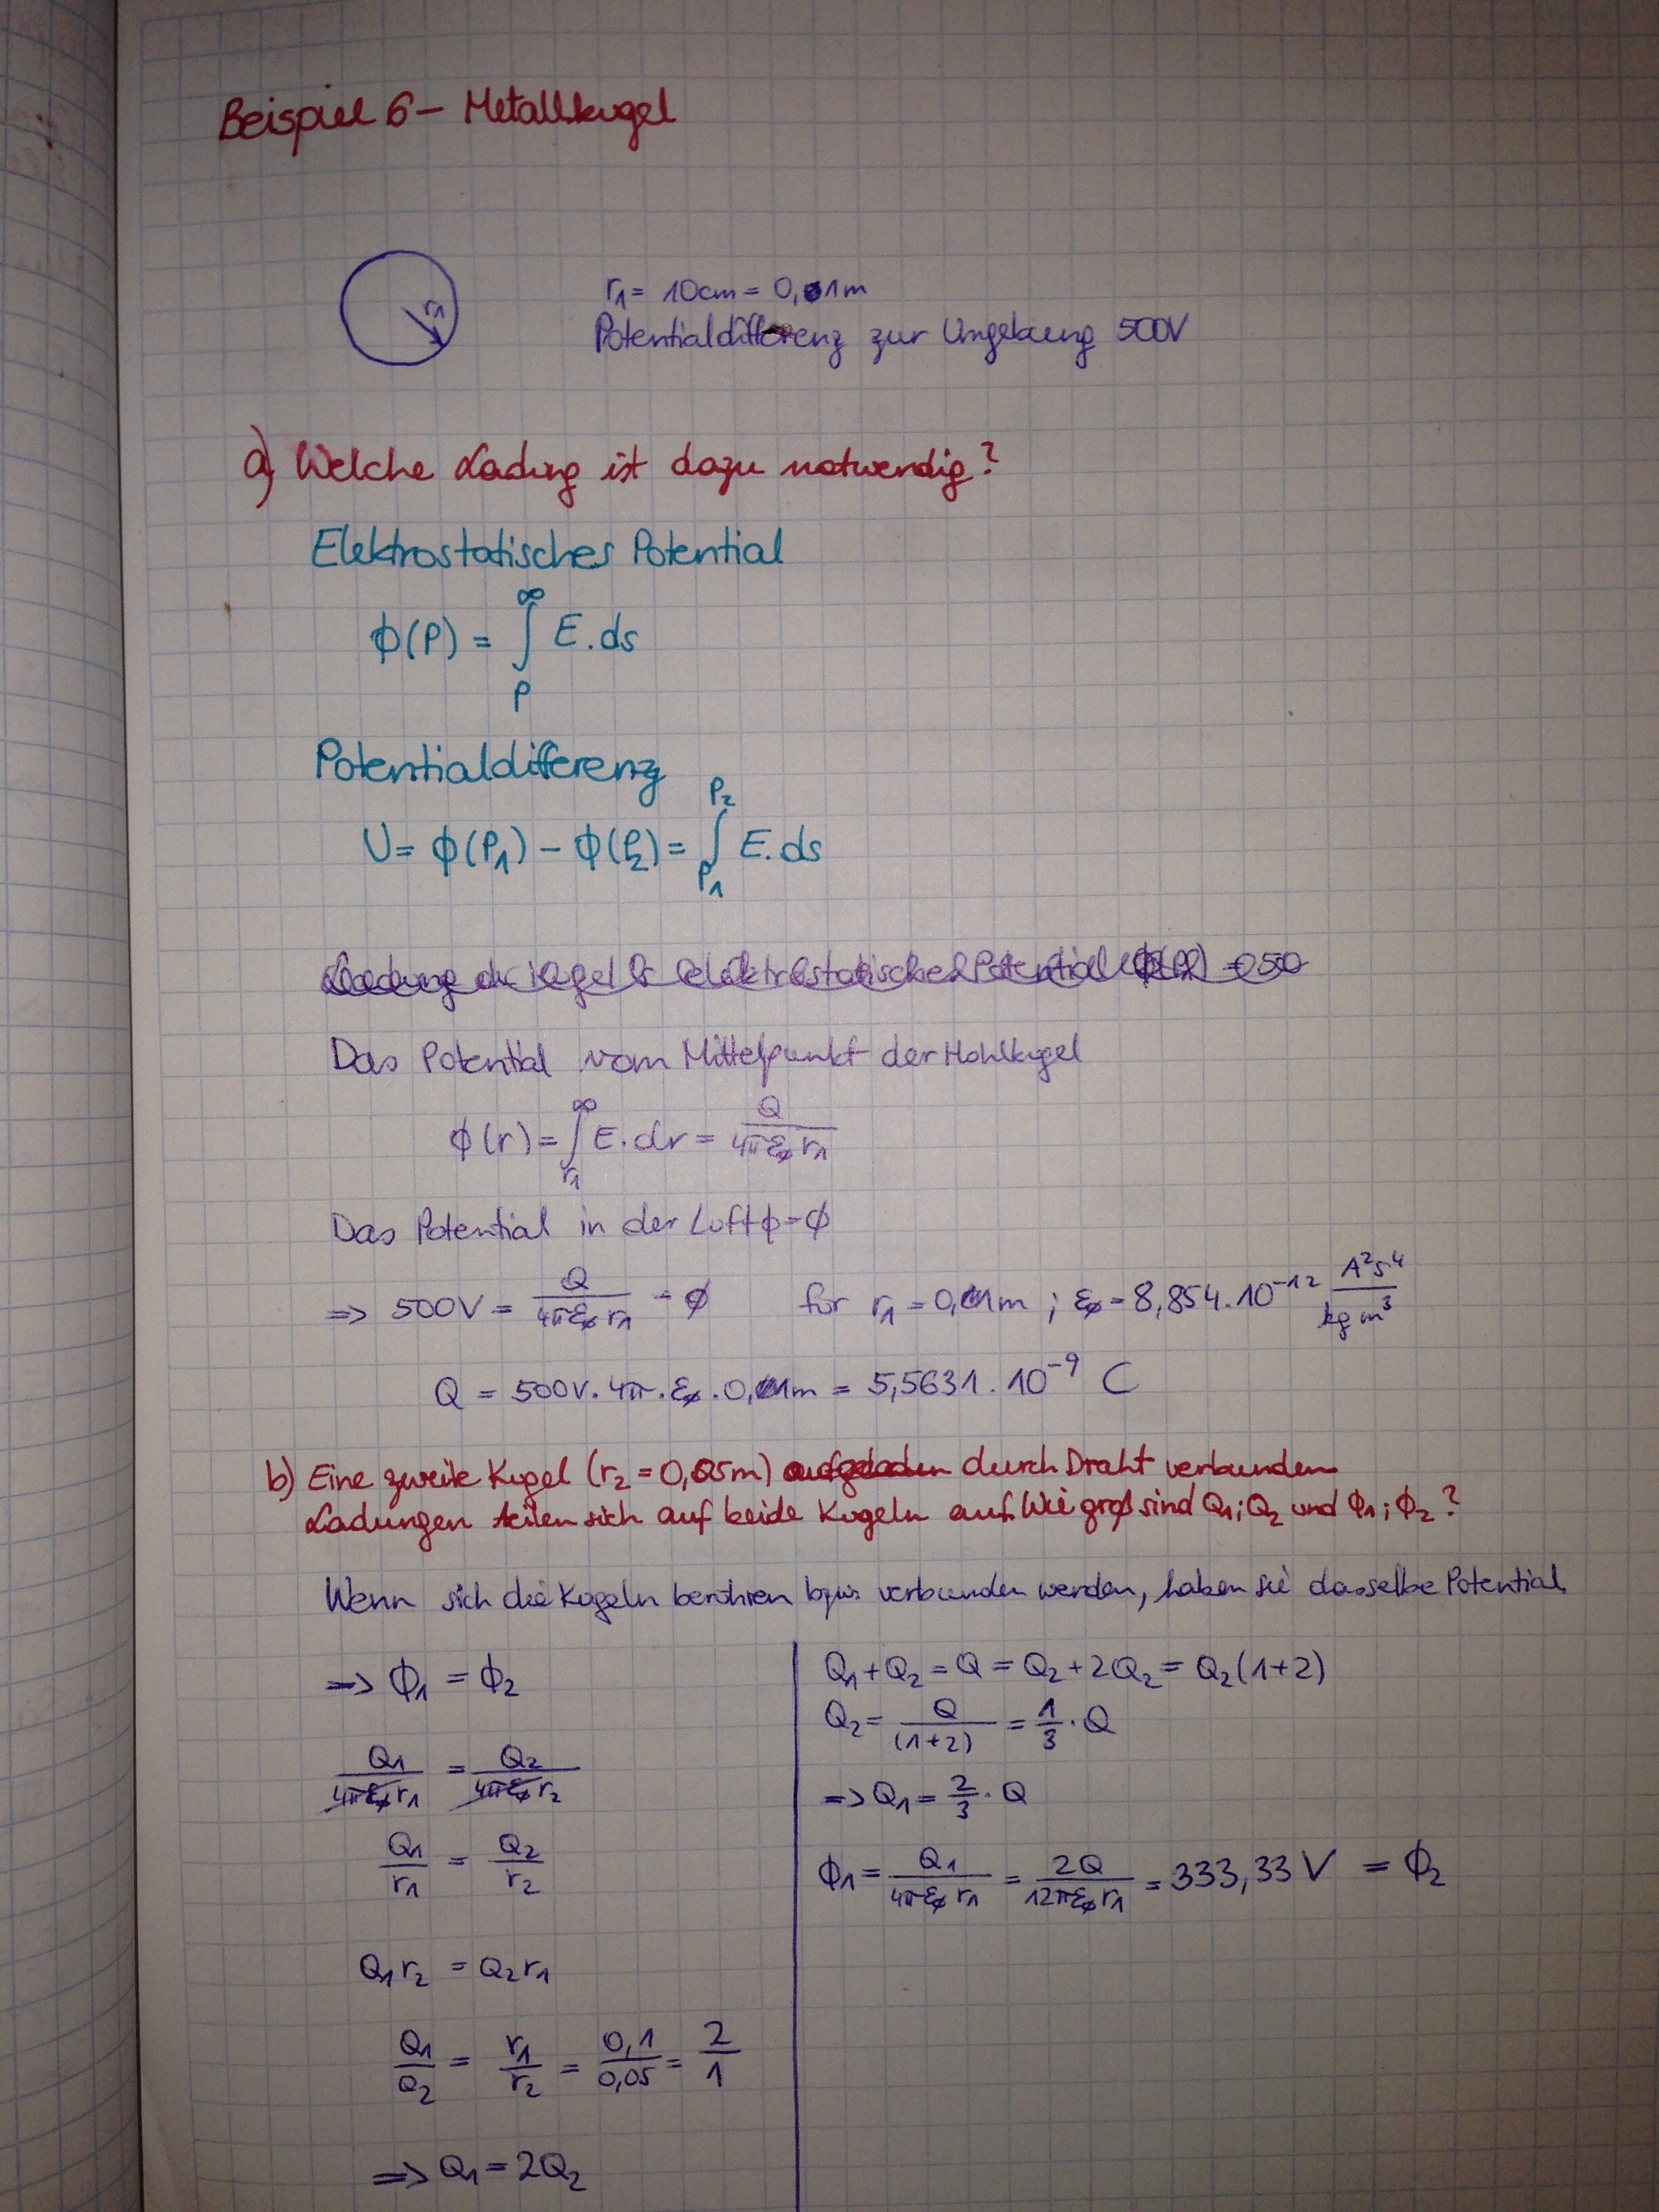 Beispiel 6 – Metallkugel
r₁
r₁ = 10cm = 0,1m
Potentialdifferenz zur Umgebung 500V
a) Welche Ladung ist dazu notwendig?
Elektrostatisches Potential
ϕ(P) = ∫_P^∞ E.ds
Potentialdifferenz
U = ϕ(P₁) – ϕ(P₂) = ∫_P₁^P₂ E.ds
Das Potential vom Mittelpunkt der Hohlkugel
ϕ(r) = ∫_r₁^∞ E.dr = Q / 4πε₀r₁
Das Potential in der Luft ϕ = 0
=> 500V = Q / 4πε₀r₁ – 0 für r₁ = 0,1m ; ε₀ = 8,854.10⁻¹² A²s⁴ / kg m³
Q = 500V.4π.ε₀.0,1m = 5,5631.10⁻⁹ C
b) Eine zweite Kugel (r₂ = 0,05m) durch Draht verbunden
Ladungen teilen sich auf beide Kugeln auf. Wie groß sind Q₁; Q₂ und ϕ₁; ϕ₂?
Wenn sich die Kugeln berühren bzw. verbunden werden, haben sie dasselbe Potential.
=> ϕ₁ = ϕ₂
Q₁ / 4πε₀r₁ = Q₂ / 4πε₀r₂
Q₁ / r₁ = Q₂ / r₂
Q₁r₂ = Q₂r₁
Q₁ / Q₂ = r₁ / r₂ = 0,1 / 0,05 = 2 / 1
=> Q₁ = 2Q₂
Q₁ + Q₂ = Q = Q₂ + 2Q₂ = Q₂(1+2)
Q₂ = Q / (1+2) = 1/3 · Q
=> Q₁ = 2/3 · Q
ϕ₁ = Q₁ / 4πε₀r₁ = 2Q / 12πε₀r₁ = 333,33V = ϕ₂